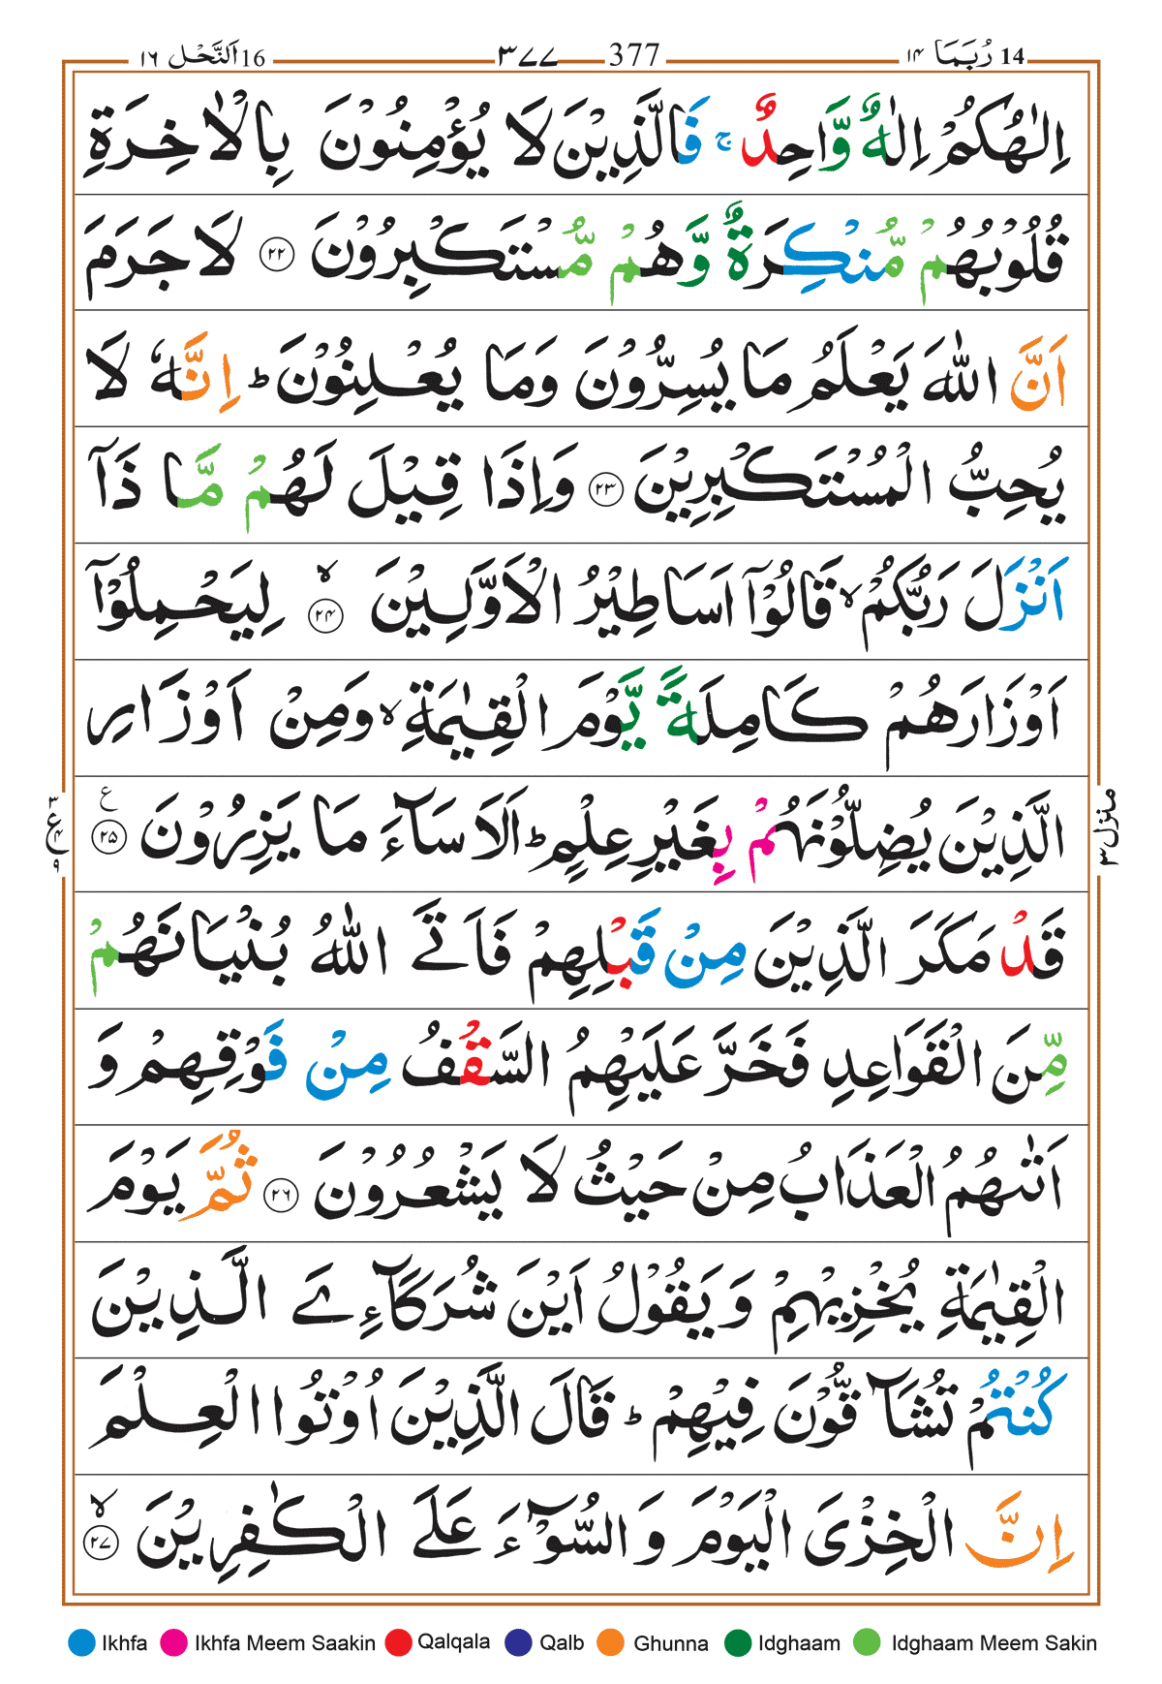 16 اَلنَّحْل ١٦ ٣٧٧ 377 14 رُبَمَا ١٤
اِلٰهُكُمْ اِلٰهٌ وَّاحِدٌ ۚ فَالَّذِيْنَ لَا يُؤْمِنُوْنَ بِالْاٰخِرَةِ
قُلُوْبُهُمْ مُّنْكِرَةٌ وَّهُمْ مُّسْتَكْبِرُوْنَ ٢٢ لَا جَرَمَ
اَنَّ اللّٰهَ يَعْلَمُ مَا يُسِرُّوْنَ وَمَا يُعْلِنُوْنَ ؕ اِنَّهٗ لَا
يُحِبُّ الْمُسْتَكْبِرِيْنَ ٢٣ وَاِذَا قِيْلَ لَهُمْ مَّا ذَآ
اَنْزَلَ رَبُّكُمْ ۙ قَالُوْٓا اَسَاطِيْرُ الْاَوَّلِيْنَ ۙ ٢٤ لِيَحْمِلُوْٓا
اَوْزَارَهُمْ كَامِلَةً يَّوْمَ الْقِيٰمَةِ ۙ وَمِنْ اَوْزَارِ
الَّذِيْنَ يُضِلُّوْنَهُمْ بِغَيْرِ عِلْمٍ ؕ اَلَا سَآءَ مَا يَزِرُوْنَ ٢٥ ع
ع ٣ ٤ ٩
منزل ٣
قَدْ مَكَرَ الَّذِيْنَ مِنْ قَبْلِهِمْ فَاَتَى اللّٰهُ بُنْيَانَهُمْ
مِّنَ الْقَوَاعِدِ فَخَرَّ عَلَيْهِمُ السَّقْفُ مِنْ فَوْقِهِمْ وَ
اَتٰىهُمُ الْعَذَابُ مِنْ حَيْثُ لَا يَشْعُرُوْنَ ٢٦ ثُمَّ يَوْمَ
الْقِيٰمَةِ يُخْزِيْهِمْ وَيَقُوْلُ اَيْنَ شُرَكَآءِىَ الَّذِيْنَ
كُنْتُمْ تُشَآقُّوْنَ فِيْهِمْ ؕ قَالَ الَّذِيْنَ اُوْتُوا الْعِلْمَ
اِنَّ الْخِزْىَ الْيَوْمَ وَ السُّوْٓءَ عَلَى الْكٰفِرِيْنَ ۙ ٢٧
Ikhfa Ikhfa Meem Saakin Qalqala Qalb Ghunna Idghaam Idghaam Meem Sakin